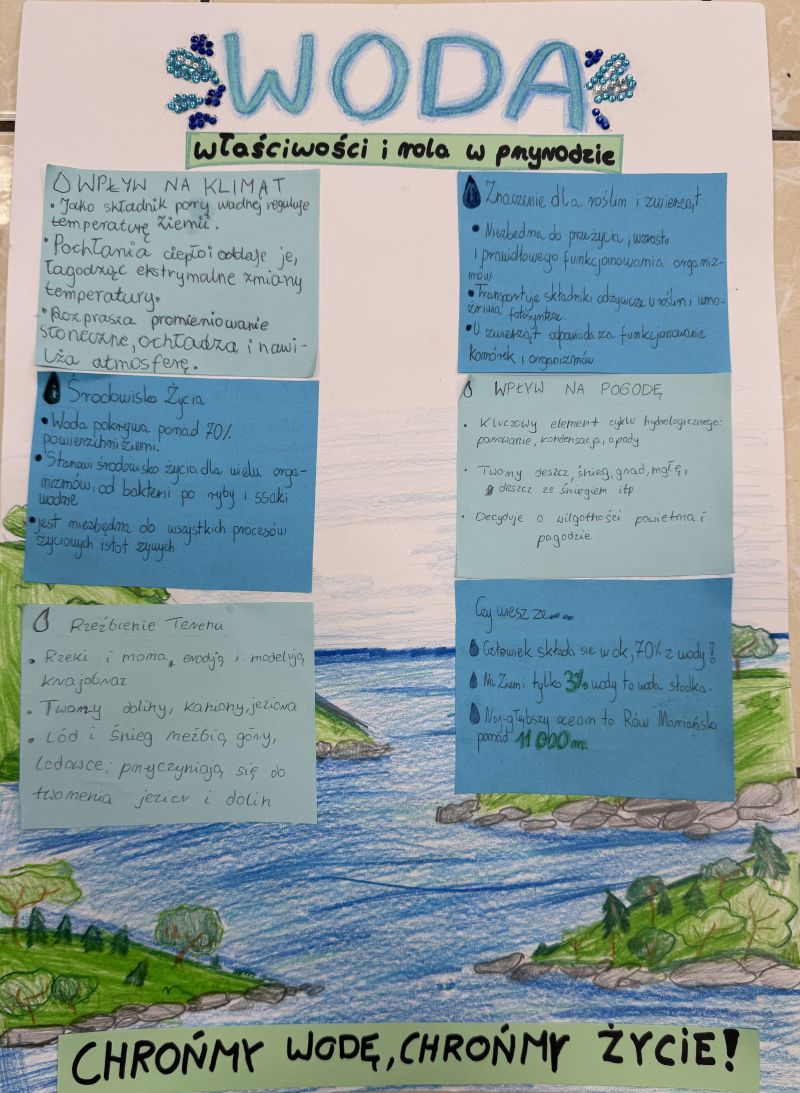 WODA
właściwości i rola w przyrodzie
WPŁYW NA KLIMAT
• Jako składnik pary wodnej reguluje
temperaturę Ziemii.
• Pochłania ciepło i oddaje je,
łagodząc ekstrymalne zmiany
temperatury.
• Rozprasza promieniowanie
słoneczne, ochładza i nawi-
lża atmosferę.
Środowisko Życia
• Woda pokrywa ponad 70%
powierzchni ziemi.
• Stanowi środowisko życia dla wielu orga-
nizmów, od bakterii po ryby i ssaki
wodne
• jest niezbędna do wszystkich procesów
życiowych istot żywych
Rzeźbienie Terenu
• Rzeki i morza, erodują i modelują
krajobraz
• Tworzy doliny, kaniony, jeziora
• Lód i śnieg rzeźbią góry,
Lodowce; przyczyniają się do
tworzenia jezior i dolin
Znaczenie dla roślin i zwierząt
• Niezbędna do przeżycia, wzrostu
i prawidłowego funkcjonowania organiz-
mów
• Transportuje składniki odżywcze u roślin i umo-
żliwia fotosyntezę.
• U zwierząt odpowiada za funkcjonowanie
komórek i organizmów
WPŁYW NA POGODĘ
• Kluczowy element cyklu hydrologicznego:
parowanie, kondensacja, opady
• Tworzy deszcz, śnieg, grad, mgłę,
deszcz ze śniegiem itp
• Decyduje o wilgotności powietrza i
pogodzie
Czy wiesz że...
Człowiek składa się w ok, 70% z wody!
Na Ziemi tylko 3% wody to woda słodka.
Naj-głębszy ocean to Rów Mariański
ponad 11 000 m.
CHROŃMY WODĘ, CHROŃMY ŻYCIE!